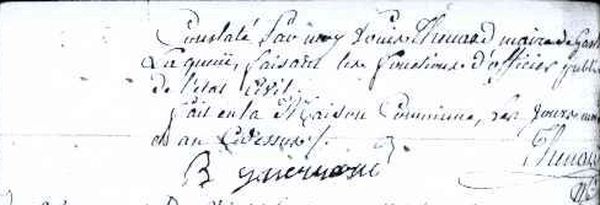 Constaté Par moy Louis Thenard maire de Gar
La queüe, faisant les fonctions d'officier publi
de l'état Civil.
fait en la Maison Commune, les jours mois
et an Cydessus /.
Thenard